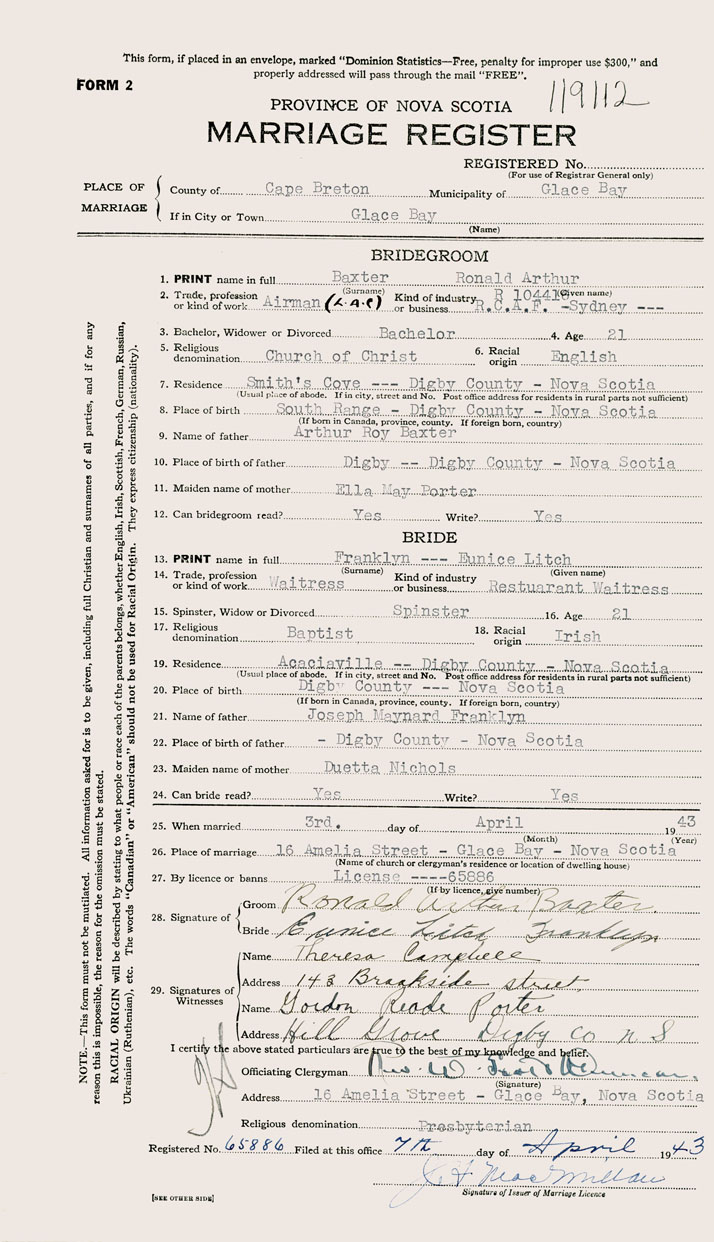 This form, if placed in an envelope, marked “Dominion Statistics—Free, penalty for improper use $300,” and
properly addressed will pass through the mail “FREE”.
FORM 2
119112
PROVINCE OF NOVA SCOTIA
MARRIAGE REGISTER
REGISTERED No.
(For use of Registrar General only)
PLACE OF MARRIAGE
County of Cape Breton Municipality of Glace Bay
If in City or Town Glace Bay
(Name)
BRIDEGROOM
1. PRINT name in full Baxter Ronald Arthur
(Surname) (Given name)
R 104416
2. Trade, profession or kind of work Airman (L.A.C) Kind of industry or business R.C.A.F. -Sydney ---
3. Bachelor, Widower or Divorced Bachelor 4. Age 21
5. Religious denomination Church of Christ 6. Racial origin English
7. Residence Smith's Cove --- Digby County - Nova Scotia
(Usual place of abode. If in city, street and No. Post office address for residents in rural parts not sufficient)
8. Place of birth South Range - Digby County - Nova Scotia
(If born in Canada, province, county. If foreign born, country)
9. Name of father Arthur Roy Baxter
10. Place of birth of father Digby -- Digby County - Nova Scotia
11. Maiden name of mother Ella May Porter
12. Can bridegroom read? Yes Write? Yes
BRIDE
13. PRINT name in full Franklyn --- Eunice Litch
(Surname) (Given name)
14. Trade, profession or kind of work Waitress Kind of industry or business Restuarant Waitress
15. Spinster, Widow or Divorced Spinster 16. Age 21
17. Religious denomination Baptist 18. Racial origin Irish
19. Residence Acaciaville -- Digby County - Nova Scotia
(Usual place of abode. If in city, street and No. Post office address for residents in rural parts not sufficient)
20. Place of birth Digby County --- Nova Scotia
(If born in Canada, province, county. If foreign born, country)
21. Name of father Joseph Maynard Franklyn
22. Place of birth of father - Digby County - Nova Scotia
23. Maiden name of mother Duetta Nichols
24. Can bride read? Yes Write? Yes
25. When married 3rd. day of April 1943
(Month) (Year)
26. Place of marriage 16 Amelia Street - Glace Bay - Nova Scotia
(Name of church or clergyman's residence or location of dwelling house)
27. By licence or banns License ----65886
(If by licence, give number)
28. Signature of
Groom Ronald Arthur Baxter.
Bride Eunice Litch Franklyn
29. Signatures of Witnesses
Name Theresa Campbell
Address 143 Brookside street,
Name Gordon Reade Porter
Address Hill Grove Digby Co N S
I certify the above stated particulars are true to the best of my knowledge and belief.
Officiating Clergyman Rev. W.
(Signature)
Address 16 Amelia Street - Glace Bay, Nova Scotia
Religious denomination Presbyterian
Registered No. 65886 Filed at this office 7th day of April 1943
J H MacMillan
Signature of Issuer of Marriage Licence
[SEE OTHER SIDE]
NOTE.—This form must not be mutilated. All information asked for is to be given, including full Christian and surnames of all parties, and if for any
reason this is impossible, the reason for the omission must be stated.
RACIAL ORIGIN will be described by stating to what people or race each of the parents belongs, whether English, Irish, Scottish, French, German, Russian,
Ukrainian (Ruthenian), etc. The words “Canadian” or “American” should not be used for Racial Origin. They express citizenship (nationality).